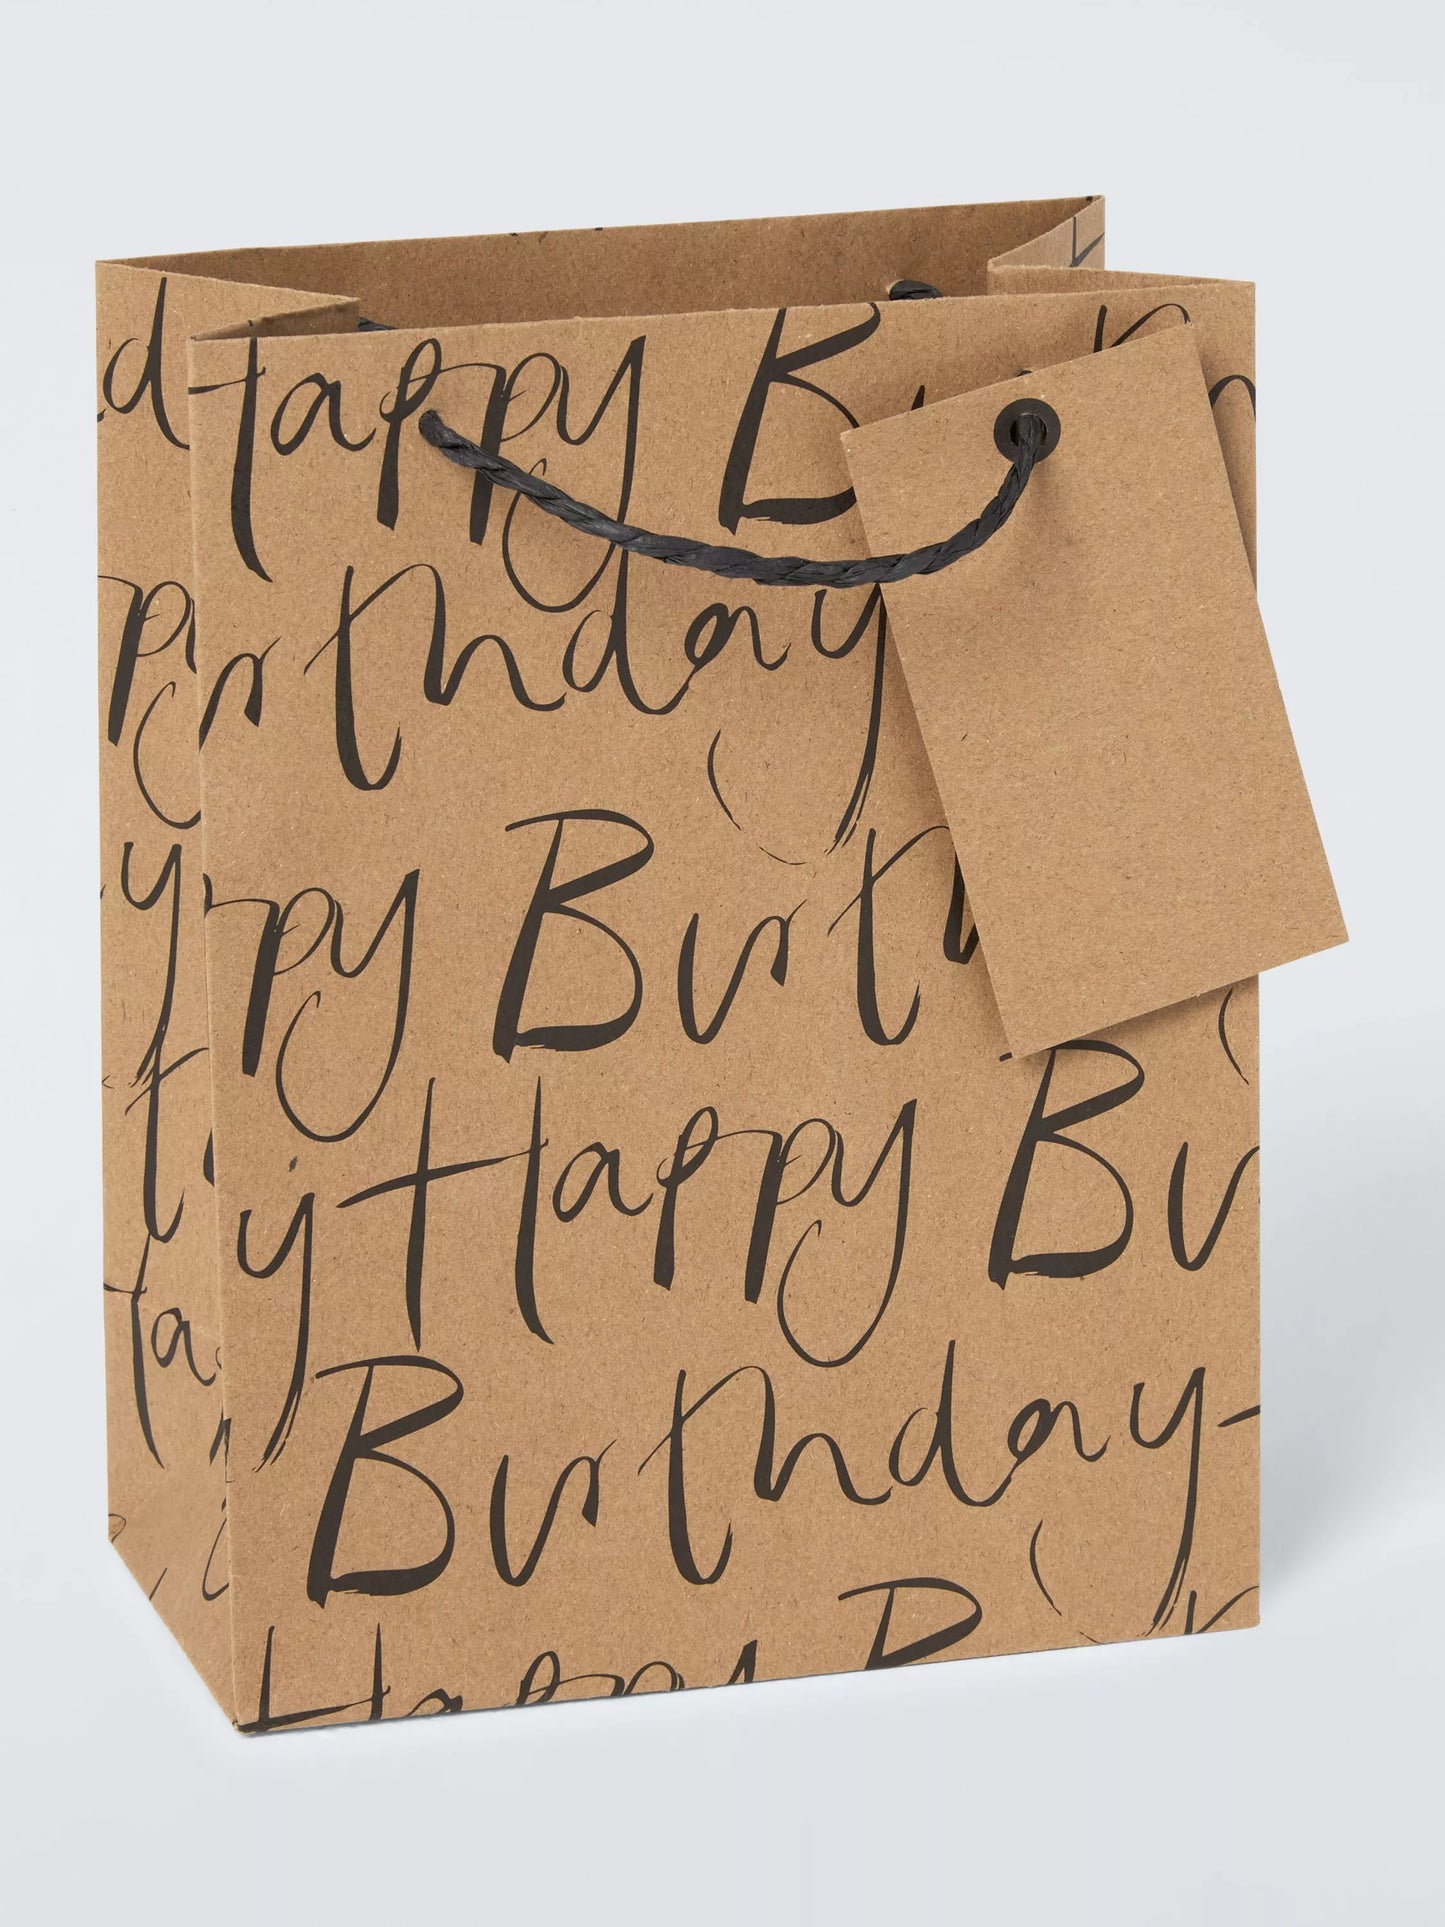 Happy B
irthday
ppy Birth
y Happy Bi
Birthday
Happy B